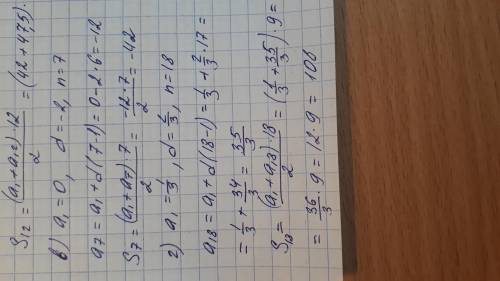 S₁₂ = (a₁+a₁₂)·12/2 = (42+47,5)·
в) a₁=0, d=-2, n=7
a₇ = a₁+d(7-1)=0-2·6=-12
S₇ = (a₁+a₇)·7/2 = -12·7/2 = -42
г) a₁=1/3, d=2/3, n=18
a₁₈ = a₁+d(18-1)=1/3+2/3·17=
=1/3+34/3=35/3
S₁₈ = (a₁+a₁₈)·18/2 = (1/3+35/3)·9=
=36/3·9=12·9= 108